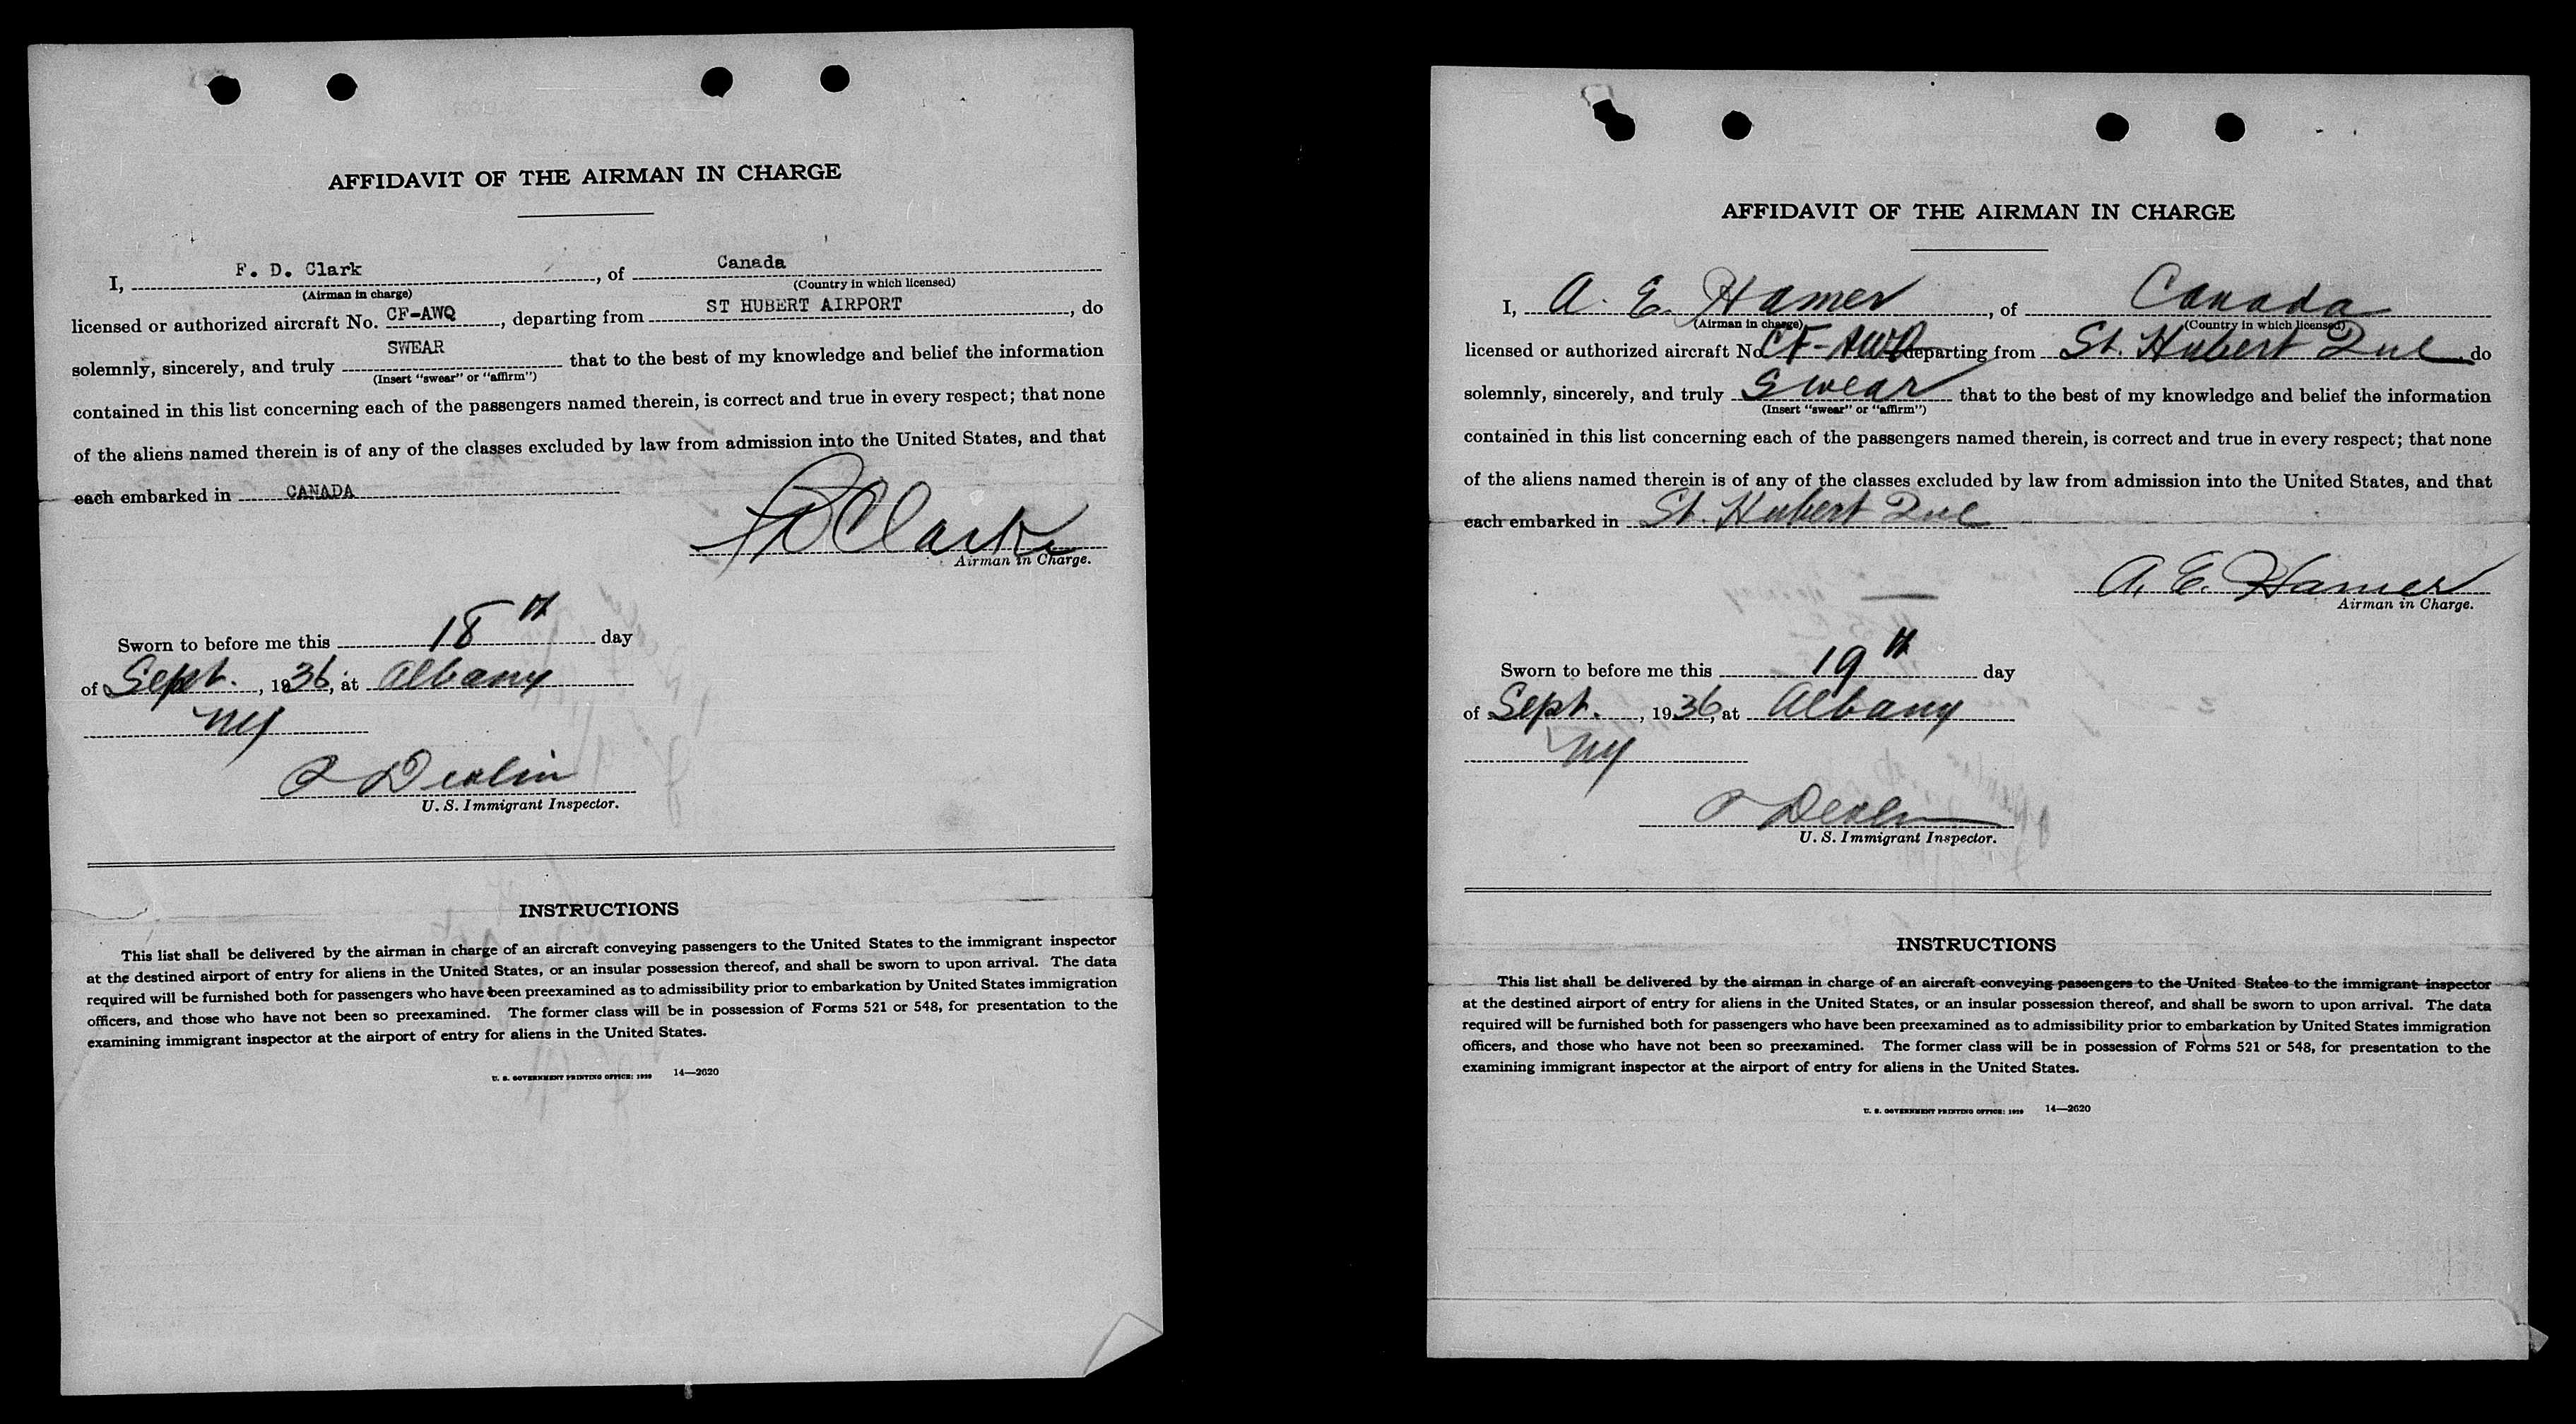 AFFIDAVIT OF THE AIRMAN IN CHARGE
I, F. D. Clark, of Canada
(Airman in charge) (Country in which licensed)
licensed or authorized aircraft No. CF-AWQ, departing from ST HUBERT AIRPORT, do
solemnly, sincerely, and truly SWEAR that to the best of my knowledge and belief the information
(Insert "swear" or "affirm")
contained in this list concerning each of the passengers named therein, is correct and true in every respect; that none
of the aliens named therein is of any of the classes excluded by law from admission into the United States, and that
each embarked in CANADA
F D Clark
Airman in Charge.
Sworn to before me this 18th day
of Sept., 1936, at Albany
NY
Devlin
U. S. Immigrant Inspector.
INSTRUCTIONS
This list shall be delivered by the airman in charge of an aircraft conveying passengers to the United States to the immigrant inspector
at the destined airport of entry for aliens in the United States, or an insular possession thereof, and shall be sworn to upon arrival. The data
required will be furnished both for passengers who have been preexamined as to admissibility prior to embarkation by United States immigration
officers, and those who have not been so preexamined. The former class will be in possession of Forms 521 or 548, for presentation to the
examining immigrant inspector at the airport of entry for aliens in the United States.
U. S. GOVERNMENT PRINTING OFFICE: 1929 14—2620
AFFIDAVIT OF THE AIRMAN IN CHARGE
I, A. E. Hamer, of Canada
(Airman in charge) (Country in which licensed)
licensed or authorized aircraft No. CF-AWQ departing from St. Hubert Que, do
solemnly, sincerely, and truly Swear that to the best of my knowledge and belief the information
(Insert "swear" or "affirm")
contained in this list concerning each of the passengers named therein, is correct and true in every respect; that none
of the aliens named therein is of any of the classes excluded by law from admission into the United States, and that
each embarked in St. Hubert Que
A. E. Hamer
Airman in Charge.
Sworn to before me this 19th day
of Sept., 1936, at Albany
NY
Devlin
U. S. Immigrant Inspector.
INSTRUCTIONS
This list shall be delivered by the airman in charge of an aircraft conveying passengers to the United States to the immigrant inspector
at the destined airport of entry for aliens in the United States, or an insular possession thereof, and shall be sworn to upon arrival. The data
required will be furnished both for passengers who have been preexamined as to admissibility prior to embarkation by United States immigration
officers, and those who have not been so preexamined. The former class will be in possession of Forms 521 or 548, for presentation to the
examining immigrant inspector at the airport of entry for aliens in the United States.
U. S. GOVERNMENT PRINTING OFFICE: 1929 14—2620